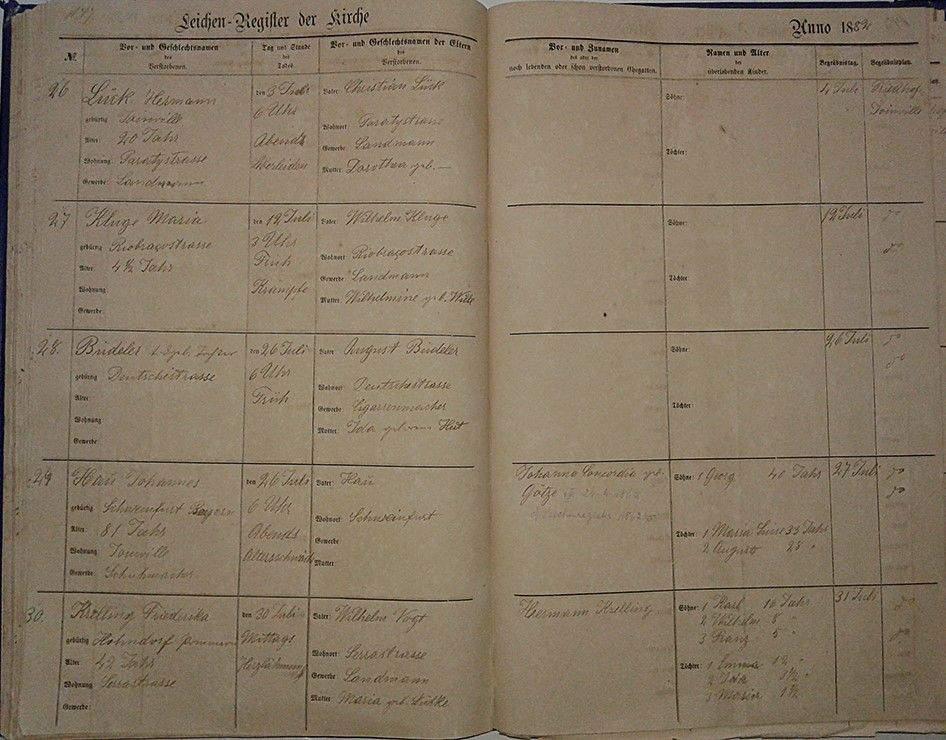 Leichen-Register der Kirche
Anno 188
№
Vor- und Geschlechtsnamen
des
Verstorbenen.
Tag und Stunde
des
Todes
Vor- und Geschlechtsnamen der Eltern
des
Verstorbenen.
Vor- und Zunamen
des oder der
noch lebenden oder schon verstorbenen Ehegatten.
Namen und Alter
der
überlebenden Kinder.
Begräbnistag.
Begräbnisplatz.
26
Lück Hermann
gebürtig Joinville
Alter: 20 Jahr
Wohnung: Paratystrasse
Gewerbe: Landmann
den 3 Juli
6 Uhr
Abends
Vater: Christian Lück
Wohnort: Paratystrasse
Gewerbe: Landmann
Mutter: Dorothea geb. —
Söhne:
Töchter:
4 Juli
Friedhof
Joinville
27
Kluge Maria
gebürtig Riobracostrasse
Alter: 4½ Jahr
Wohnung
Gewerbe:
den 12 Juli
3 Uhr
Früh
Krämpfe
Vater: Wilhelm Kluge
Wohnort: Riobracostrasse
Gewerbe: Landmann
Mutter: Wilhelmine geb.
Söhne:
Töchter:
12 Juli
do
do
28.
Büdeler
gebürtig Deutschestrasse
Alter:
Wohnung
Gewerbe:
den 26 Juli
6 Uhr
Früh
Vater: August Büdeler
Wohnort: Deutschestrasse
Gewerbe: Cigarrenmacher
Mutter: Ida geborene
Söhne:
Töchter:
26 Juli
do
do
29
Hau Johannes
gebürtig: Schweinfurt Bayern
Alter: 81 Jahr
Wohnung Joinville
Gewerbe: Schuhmacher
den 26 Juli
6 Uhr
Abends
Altersschwäche
Vater: Hau
Wohnort: Schweinfurt
Gewerbe
Mutter
Johanna Concordia geb.
Götze
Söhne: 1 Georg 40 Jahr
Töchter 1 Maria 33 Jahr
2 August
27 Juli
do
do
30.
Krelling Friederika
gebürtig Hohndorf Pommern
Alter 42 Jahr
Wohnung: Serrastrasse
Gewerbe:
den 30 Juli
Mittags
Herzlähmung
Vater: Wilhelm Vogt
Wohnort: Serrastrasse
Gewerbe Landmann
Mutter Maria geb.
Hermann Krelling
Söhne: 1 Karl 16 Jahr
2 Wilhelm 8 "
3 Franz 5 "
Töchter: 1 Emma
2 Ida
3 Maria
31 Juli
do
do